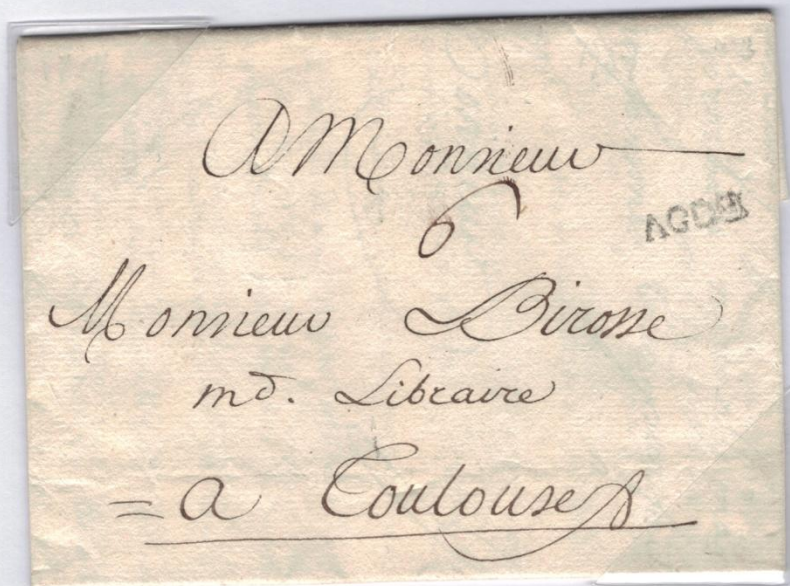 A Monsieur
6
AGDE
Monsieur Birosse
md. Libraire
= a Toulouse